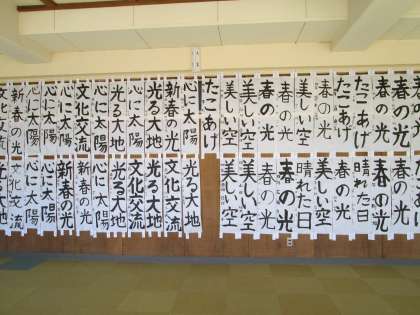 春の光
春の光
たこあげ
たこあげ
春の光
美しい空
春の光
春の光
美しい空
美しい空
たこあげ
心に太陽
新春の光
光る大地
光る大地
光る大地
心に太陽
文化交流
心に太陽
心に太陽
心に太陽
新春の光
文化交流
美しい空
春の光
春の光
晴れた日
春の光
美しい空
晴れた日
春の光
春の光
美しい空
美しい空
光る大地
文化交流
光る大地
文化交流
光る大地
心に太陽
新春の光
新春の光
心に太陽
心に太陽
文化交流